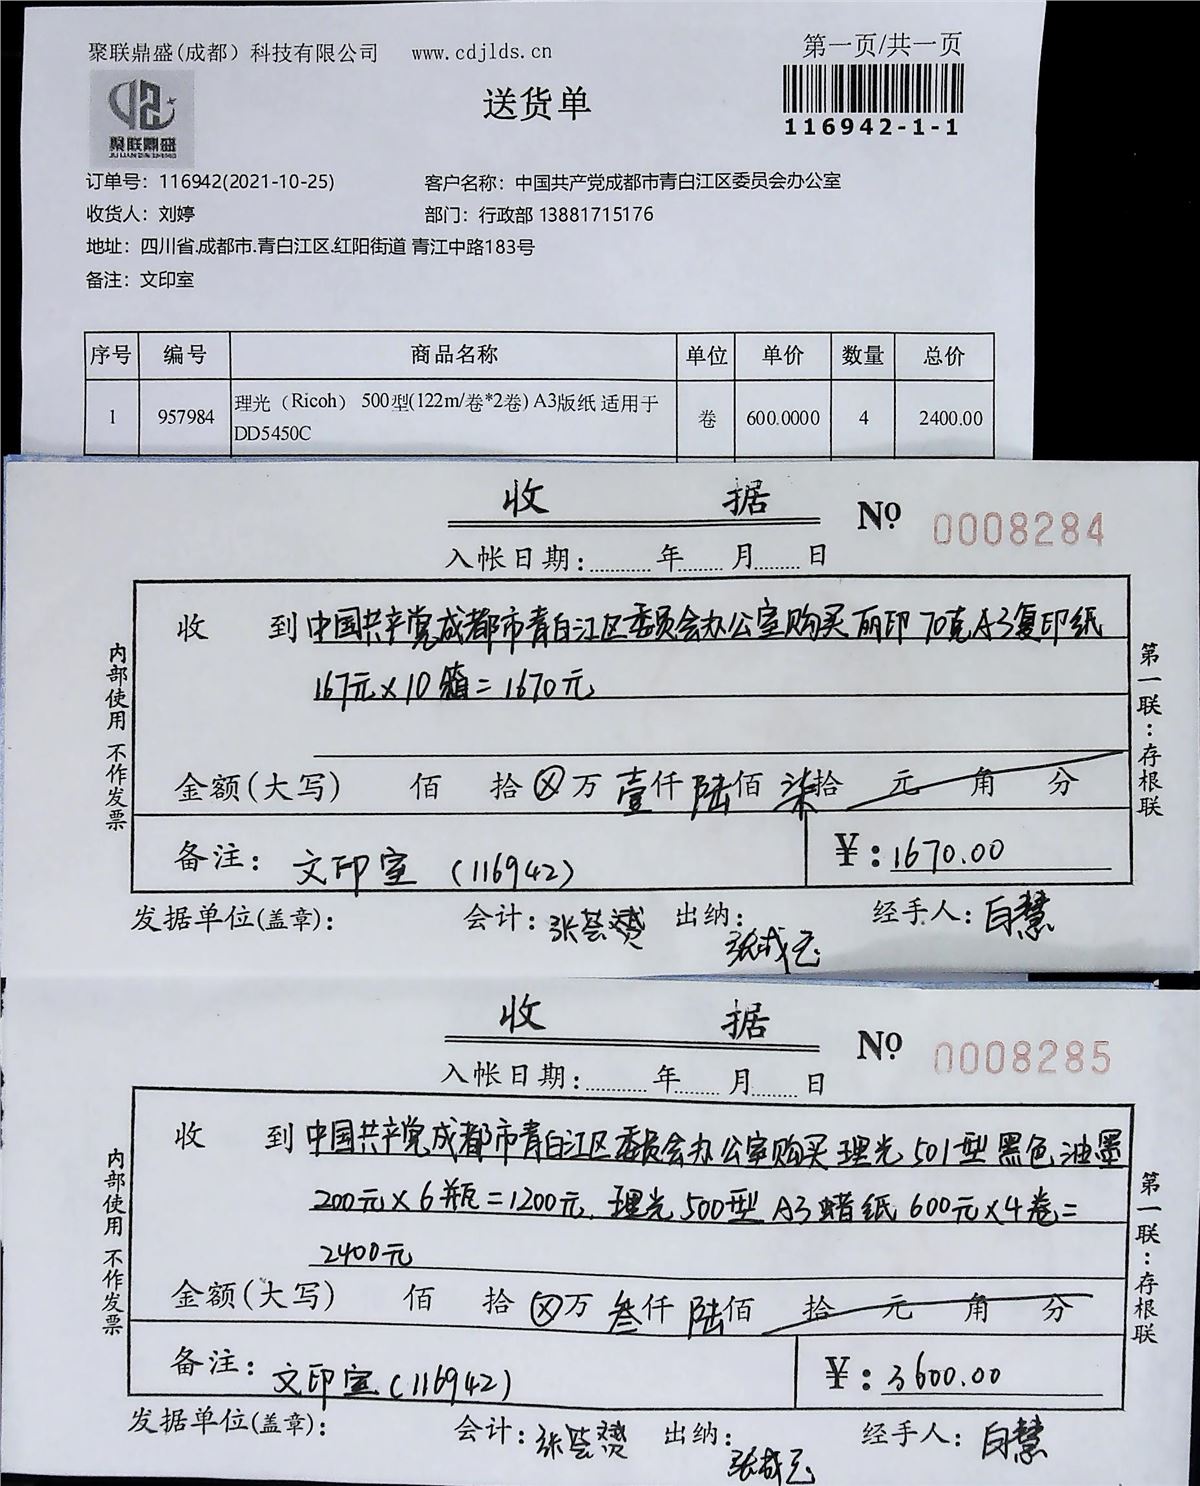 聚联鼎盛(成都)科技有限公司 www.cdjlds.cn
第一页/共一页
送货单
116942-1-1
聚联鼎盛
JU LIAN DING SHENG
订单号：116942(2021-10-25) 客户名称：中国共产党成都市青白江区委员会办公室
收货人：刘婷 部门：行政部 13881715176
地址：四川省.成都市.青白江区.红阳街道 青江中路183号
备注：文印室
序号 编号 商品名称 单位 单价 数量 总价
1 957984 理光（Ricoh） 500型(122m/卷*2卷) A3版纸 适用于 卷 600.0000 4 2400.00
DD5450C
收 据 No 0008284
入帐日期：........年........月........日
收 到 中国共产党成都市青白江区委员会办公室购买丽印70克A3复印纸
167元×10箱=1670元
金额(大写) 佰 拾 ⊗万 壹仟 陆佰 柒拾 元 角 分
备注：文印室 (116942) ¥：1670.00
发据单位(盖章)： 会计：张芸赟 出纳： 经手人：白慧
内部使用 不作发票
第一联：存根联
收 据 No 0008285
入帐日期：........年........月........日
收 到 中国共产党成都市青白江区委员会办公室购买理光501型黑色油墨
200元×6瓶=1200元. 理光500型 A3蜡纸 600元×4卷=
2400元
金额(大写) 佰 拾 ⊗万 叁仟 陆佰 拾 元 角 分
备注：文印室(116942) ¥：3600.00
发据单位(盖章)： 会计：张芸赟 出纳： 经手人：白慧
内部使用 不作发票
第一联：存根联